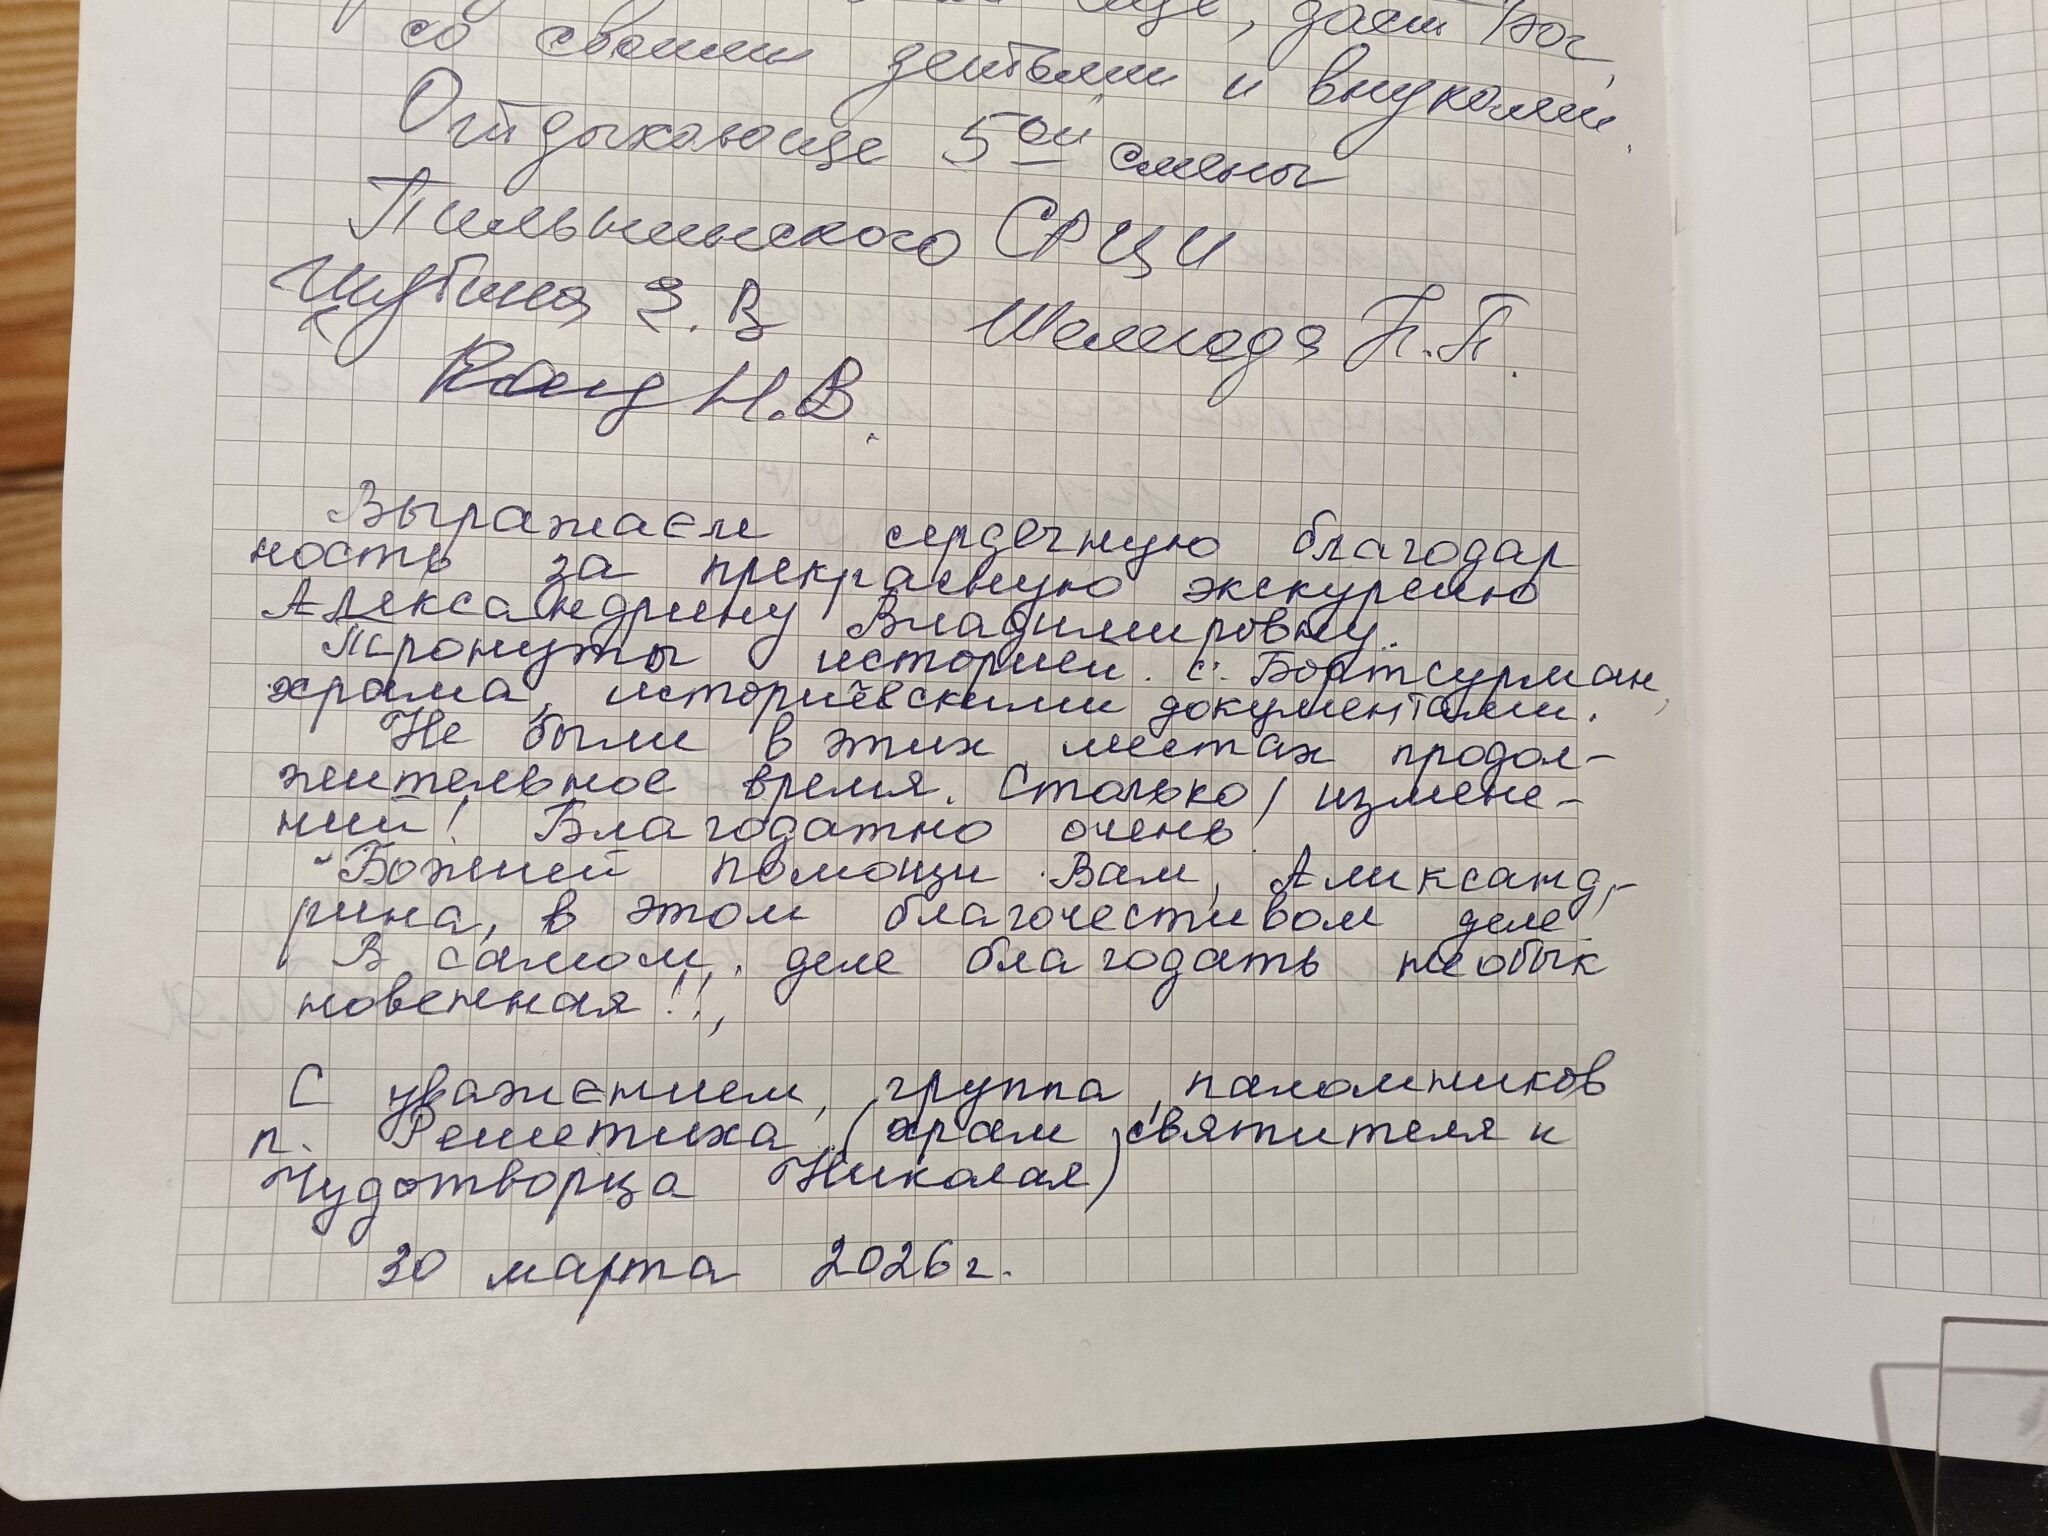 еще, даст Бог,
со своими детьми и внуками.
Отдыхающие 5ой смены
Пильнинского СРЦИ
Шубина З.В Шелегода Н.П.
Н.В.
Выражаем сердечную благодар
ность за прекрасную экскурсию
Александрину Владимировну.
Тронуты историей с. Бортсурман,
храма, историческими документами.
Не были в этих местах продол-
жительное время. Столько измене-
ний! Благодатно очень
Божией помощи Вам, Александ-
рина, в этом благочестивом деле.
В самом деле благодать необык
новенная!!,
С уважением, группа паломников
п. Решетиха (храм святителя и
Чудотворца Николая)
30 марта 2026г.